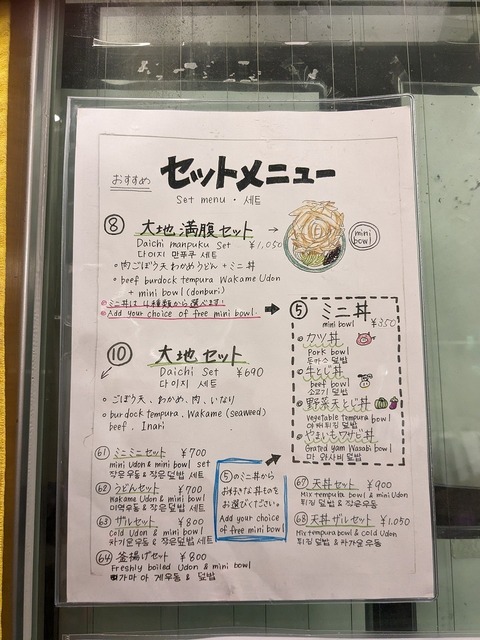 おすすめ
セットメニュー
Set menu・세트
⑧ 大地満腹セット →
Daichi manpuku Set ¥1,050
다이지 만푸쿠 세트
・肉ごぼう天わかめうどん + ミニ丼
・beef burdock tempura Wakame Udon
+ mini bowl (donburi)
◎ミニ丼は4種類から選べます!
◎Add your choice of free mini bowl.
mini
bowl
⑩ 大地セット
Daichi Set ¥690
다이지 세트
・ごぼう天、わかめ、肉、いなり
・burdock tempura, Wakame (seaweed)
beef, Inari
⑤ ミニ丼
mini bowl ¥350
カツ丼
Pork bowl
돈까스 덮밥
牛とじ丼
beef bowl
소고기 덮밥
野菜天とじ丼
Vegetable tempura bowl
야채튀김 덮밥
やまいもワサビ丼
Grated yam Wasabi bowl
마 와사비 덮밥
61 ミニミニセット ¥700
mini Udon & mini bowl set
작은우동 & 작은덮밥 세트
62 うどんセット ¥700
Wakame Udon & mini bowl
미역우동 & 작은덮밥 세트
63 ザルセット ¥800
Cold Udon & mini bowl
자가운우동 & 작은덮밥 세트
64 釜揚げセット ¥800
Freshly boiled Udon & mini bowl
가마아게우동 & 덮밥
⑤のミニ丼から
お好きな丼もの
お選びください。
Add your choice
of free mini bowl
67 天丼セット ¥900
Mix tempura bowl & mini Udon
튀김 덮밥 & 작은우동
68 天丼ザルセット ¥1,050
Mix tempura bowl & Cold Udon
튀김 덮밥 & 차가운 우동